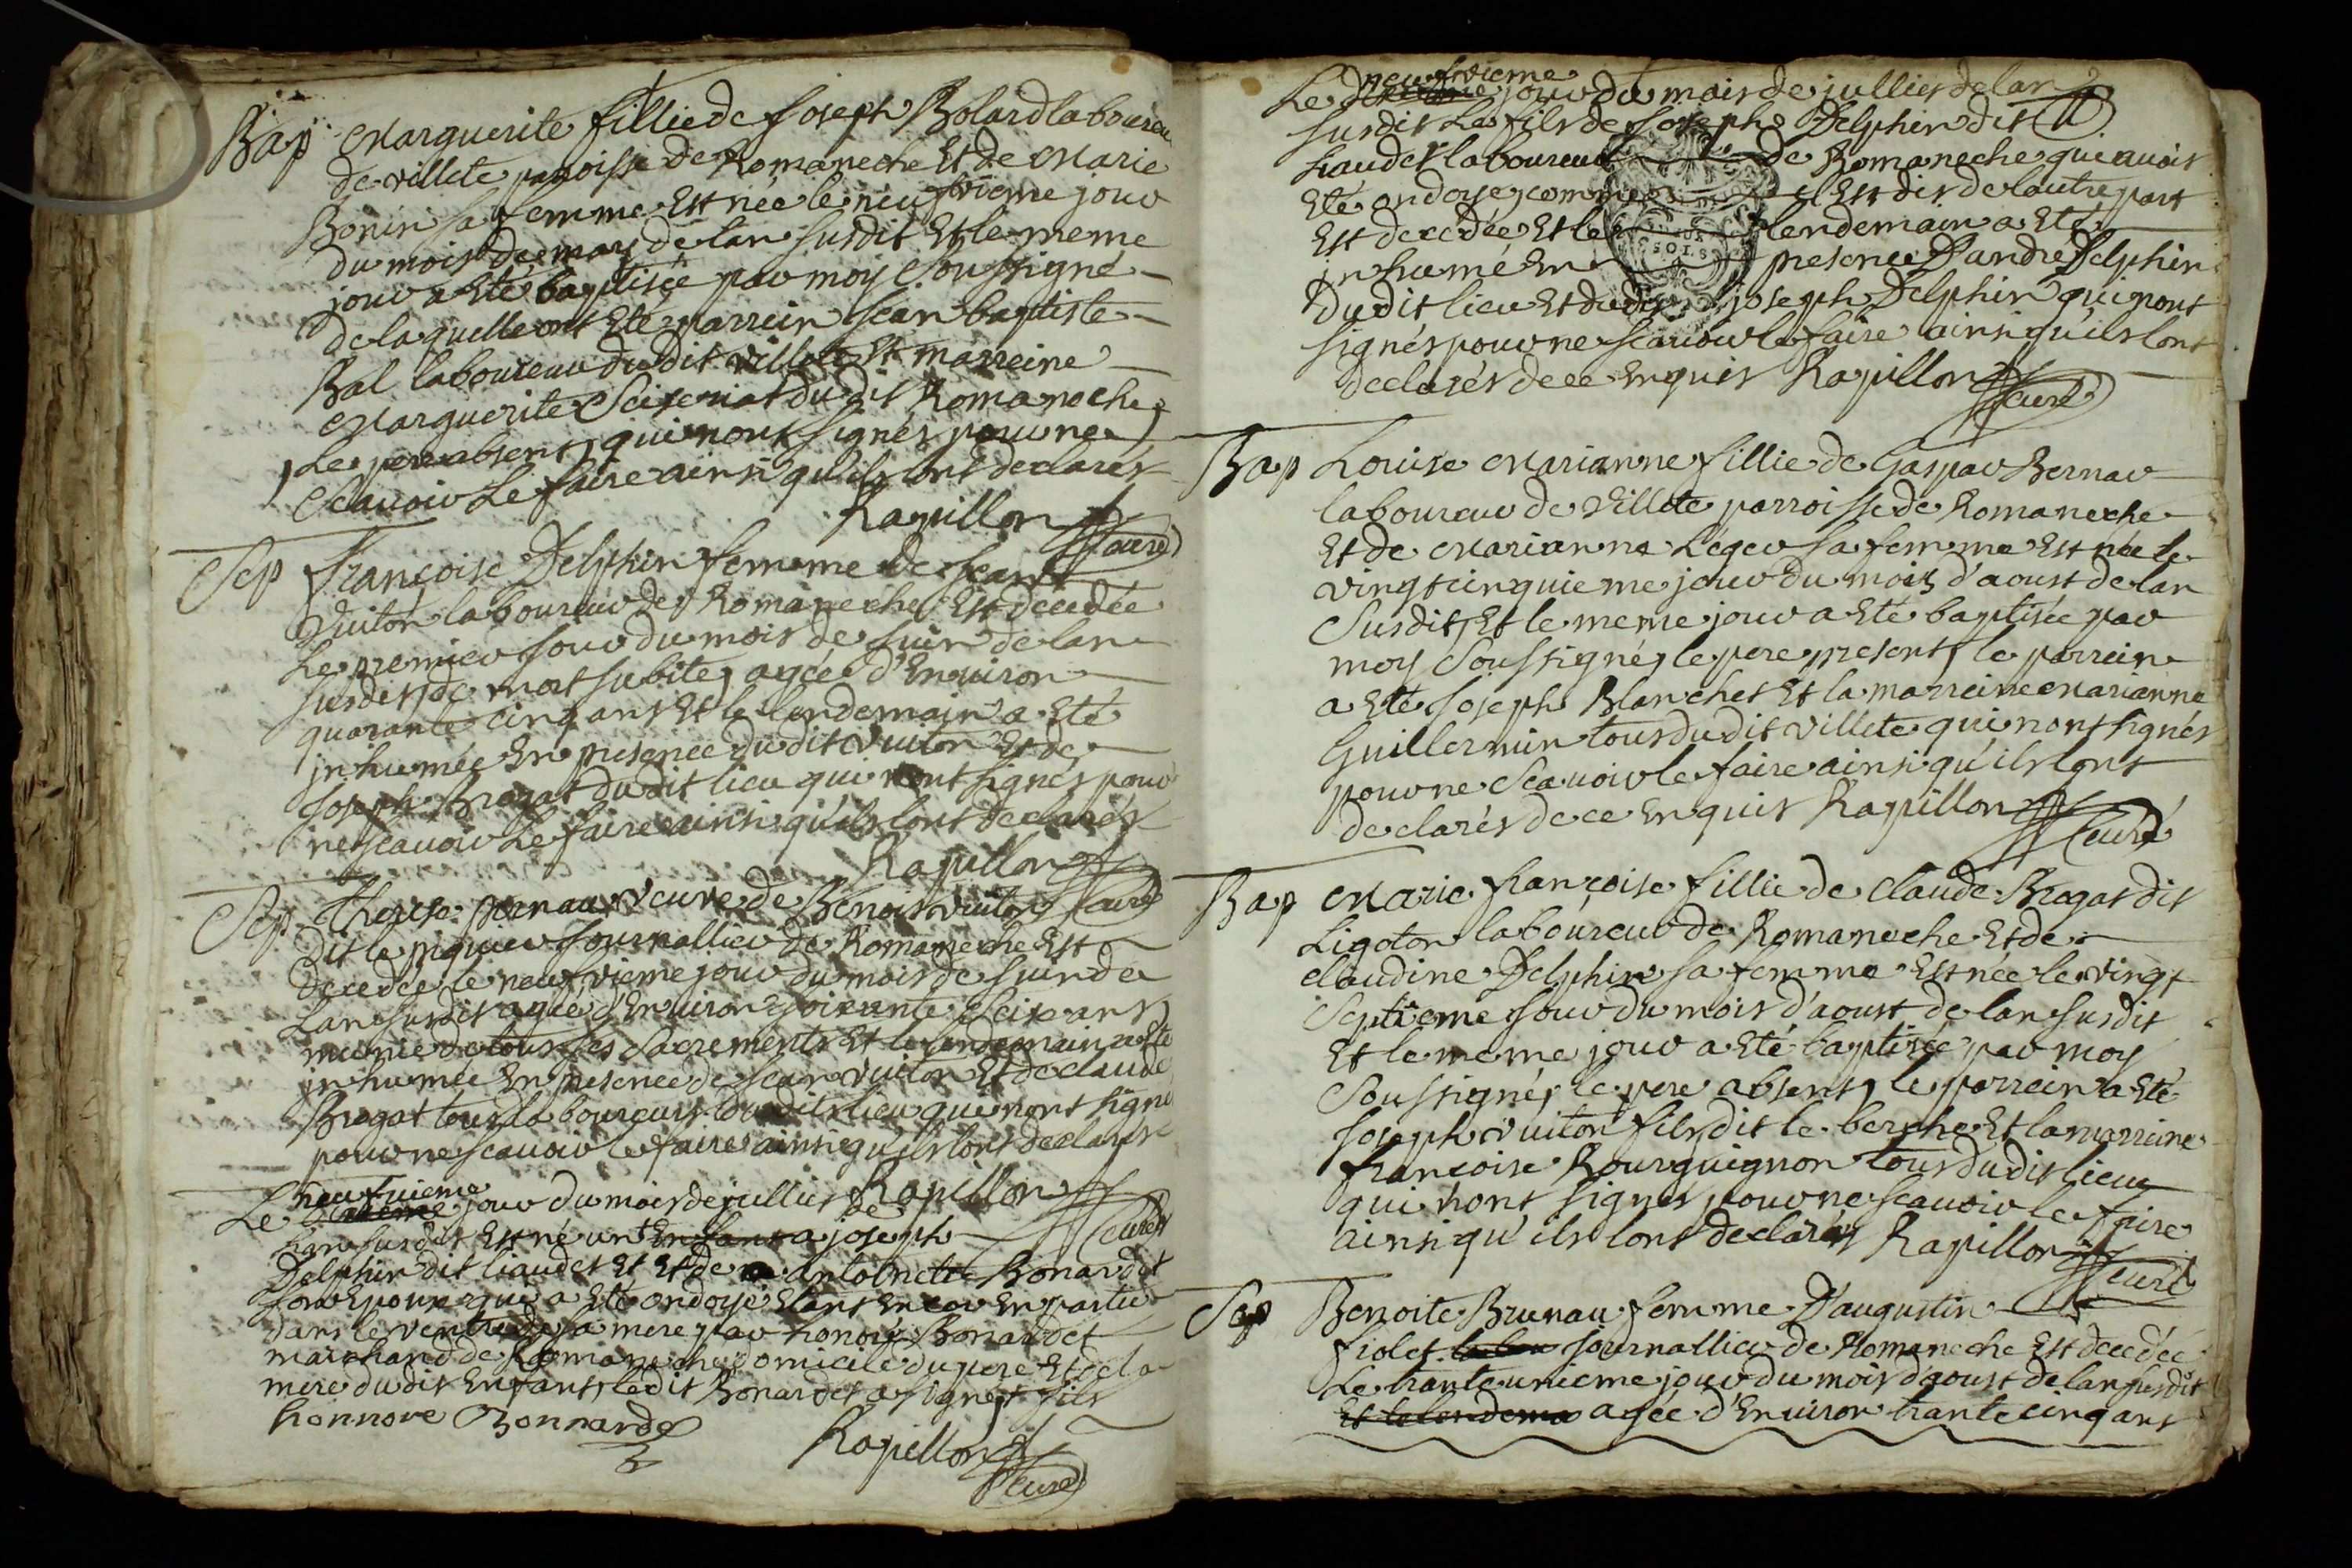 Bap Marguerite fillie de Joseph Bolard laboureu
de villete paroisse de Romaneche Et de Marie
Bonin sa femme Est née le neufvieme jour
du mois de may de lan susdit Et le meme
jour a Eté baptisée par moy soussigné
de laquelle ont Eté parrein Jean baptiste
Bal laboureur dudit villete Et marreine
Marguerite dudit Romaneche
Le pere absent, qui nont signés pour ne
scavoir Le faire ainsi qu'ils lont declarés
Rapillon curé
Sep Françoise Delphin femme de Jean
Vuiton laboureur de Romaneche Est decedée
Le premier Jour du mois de Juin de lan
susdit de mort subite, agée d'Environ
quarante cinq ans Et le lendemain a Eté
inhumée En presence dudit Vuiton Et de
Joseph Brogat dudit lieu qui nont signés pour
ne scavoir Le faire ainsi qu'ils lont declarés
Rapillon curé
Sep Therese veuve de Benoit vuiton
dit le Journallier de Romaneche Est
decedée le neufvieme jour du mois de Juin de
Lan susdit agée d'Environ soixante Seix ans
munie de tous ses Sacrements Et le lendemain a Eté
inhumée En presence de Jean vuiton Et de claude
Brogat tous laboureurs dudit lieu qui nont signé
pour ne scavoir le faire ainsi qu'ils lont declarés
Rapillon curé
neufvieme
Le jour du mois de jullier de
Lan susdit Est né un Enfant a joseph
Delphin dit liaudet Et Et de antoinette Bonardet
son Epouse qui a Eté ondoyé Etant Encor En partie
dans le ventre de sa mere par honoré Bonardet
marchand de Romaneche domicile du pere Et de la
mere dudit Enfant, ledit Bonardet a signé
honnore Bonnarde
Rapillon curé
neufvieme
Le jour du mois de jullier de lan
susdit Le fils de Joseph Delphin dit
liaudet laboureur de Romaneche qui avoit
Eté ondoyé, comme il Est dit de lautre part
Est decedée Et le lendemain a Eté
inhumé En presence D'andre Delphin
dudit lieu Et dudit joseph Delphin qui nont
signés pour ne scavoir le faire ainsi qu'ils lont
declarés de ce Enquis Rapillon curé
Bap Louise Marianne fillie de Gaspar Bernar
laboureur de Villete parroisse de Romaneche
Et de Marianne Léger sa femme Est née le
vingt cinquieme jour du mois d'aoust de lan
Susdit, Et le meme jour a Eté baptisée par
moy Soussigné, le pere present, le parrein
a Eté Joseph Blanchet Et la marreine Marianne
Guillermin tous dudit Villete qui nont signés
pour ne Scavoir le faire ainsi qu'ils lont
declarés de ce Enquis Rapillon curé
Bap Marie françoise fillie de claude Brogat dit
Ligoton laboureur de Romaneche Et de
claudine Delphin sa femme Est née le vingt
Septieme Jour du mois d'aoust de lan susdit
Et le meme jour a Eté baptisée par moy
Soussigné, le pere absent, le parrein a Eté
Joseph vuiton fils dit le berche Et la marreine
francoise Bourguignon tous dudit lieu
qui nont signés pour ne scavoir le faire
ainsi qu'ils lont declarés Rapillon curé
Sep Benoite Brunau femme D'augustin
fiolet journallier de Romaneche Est decedée
Le trante unieme jour du mois d'aoust de lan susdit
Et le lendema agée d'Environ trante cinq ans